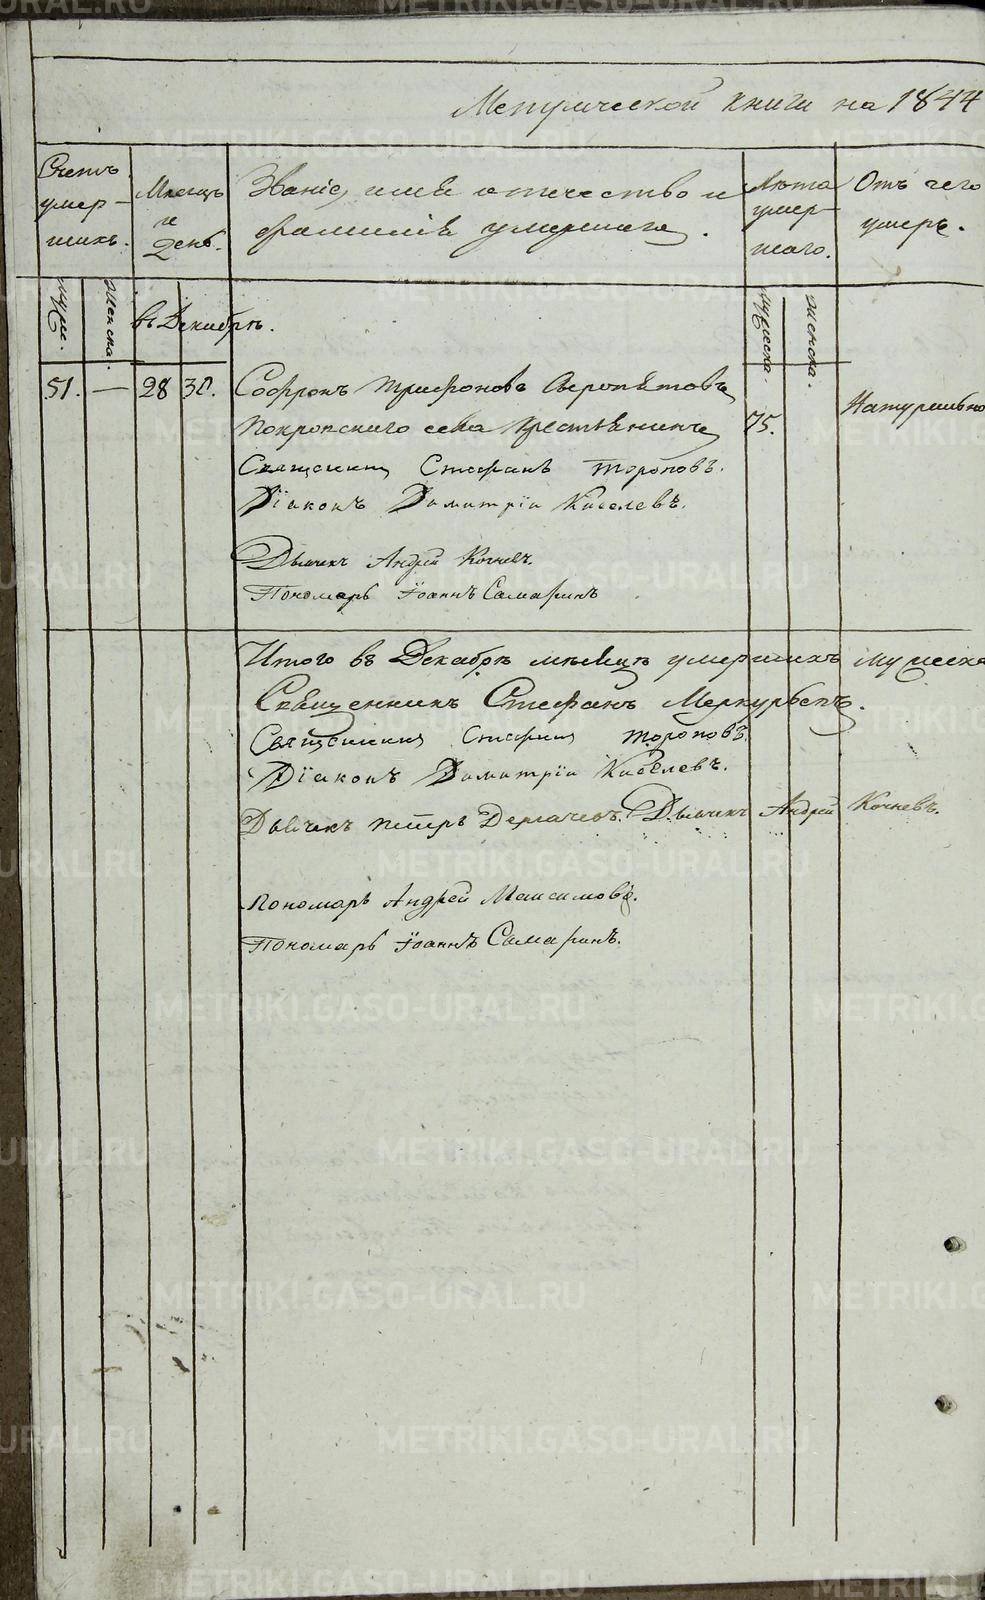 Метрической книги на 1844
Счетъ умер- шихъ.
Мѣсяцъ и день.
Званіе, имя отчество и фамилія умершаго.
Лѣта умер- шаго.
Отъ чего умеръ.
муже.
женска.
въ Декабрѣ.
мужеска.
женска.
51. — 28 30. Софронъ Трифоновъ
Покровскаго села крестьянинъ 75. Натурально
Священникъ Стефанъ Тороповъ.
Діаконъ Димитрій Киселевъ.
Дьячекъ Андрей Кочневъ.
Пономарь Іоаннъ Самаринъ
Итого въ Декабрѣ мѣсяцѣ умершихъ мужеска
Священникъ Стефанъ Меркурьевъ.
Священникъ Стефанъ Тороповъ.
Діаконъ Димитрій Киселевъ.
Дьячекъ Петръ Дергачевъ. Дьячекъ Андрей Кочневъ.
Пономарь Андрей Максимовъ.
Пономарь Іоаннъ Самаринъ.
METRIKI.GASO-URAL.RU